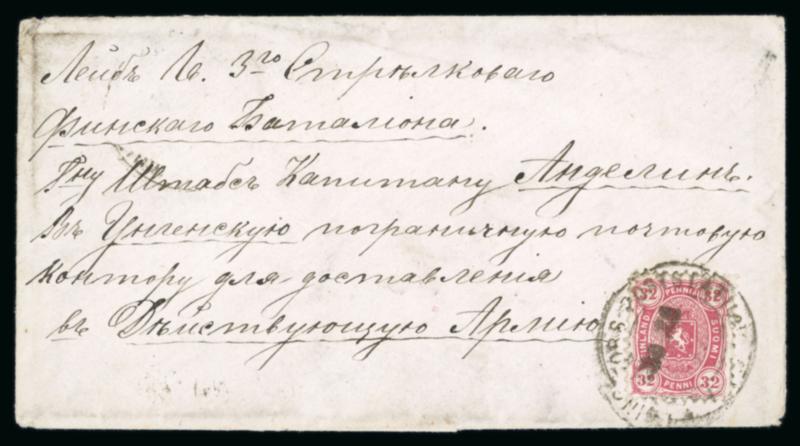 Лейбъ Гв. 3го Стрѣлковаго
Финскаго Баталіона.
Гну Штабсъ Капитану Анделинъ.
Въ Унгенскую пограничную почтовую
контору для доставленія
въ Дѣйствующую Армію
32 PENNIÄ 32
FINLAND SUOMI
32 PENNI 32